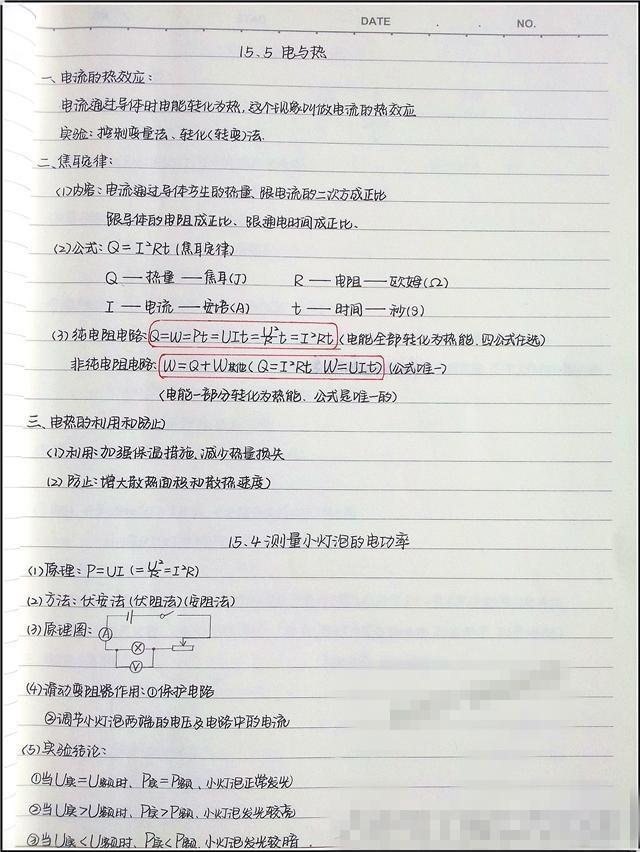 DATE . . NO.
15.5 电与热
一、电流的热效应:
电流通过导体时电能转化为热,这个现象叫做电流的热效应
实验:控制变量法、转化(转变)法.
二、焦耳定律:
(1)内容:电流通过导体产生的热量、跟电流的二次方成正比
跟导体的电阻成正比、跟通电时间成正比、
(2)公式:Q=I²Rt(焦耳定律)
Q—热量—焦耳(J) R—电阻—欧姆(Ω)
I—电流—安培(A) t—时间—秒(s)
(3)纯电阻电路:Q=W=Pt=UIt=U²/R t=I²Rt(电能全部转化为热能,四公式任选)
非纯电阻电路:W=Q+W其他(Q=I²Rt W=UIt)(公式唯一)
(电能一部分转化为热能、公式是唯一的)
三、电热的利用和防止
(1)利用:加强保温措施、减少热量损失
(2)防止:增大散热面积和散热速度)
15.4测量小灯泡的电功率
(1)原理:P=UI(=U²/R=I²R)
(2)方法:伏安法(伏阻法)(安阻法)
(3)原理图:
A
X
V
(4)滑动变阻器作用:①保护电路
②调节小灯泡两端的电压及电路中的电流
(5)实验结论:
①当U实=U额时、P实=P额、小灯泡正常发光
②当U实>U额时、P实>P额、小灯泡发光较亮
③当U实<U额时、P实<P额、小灯泡发光较暗.